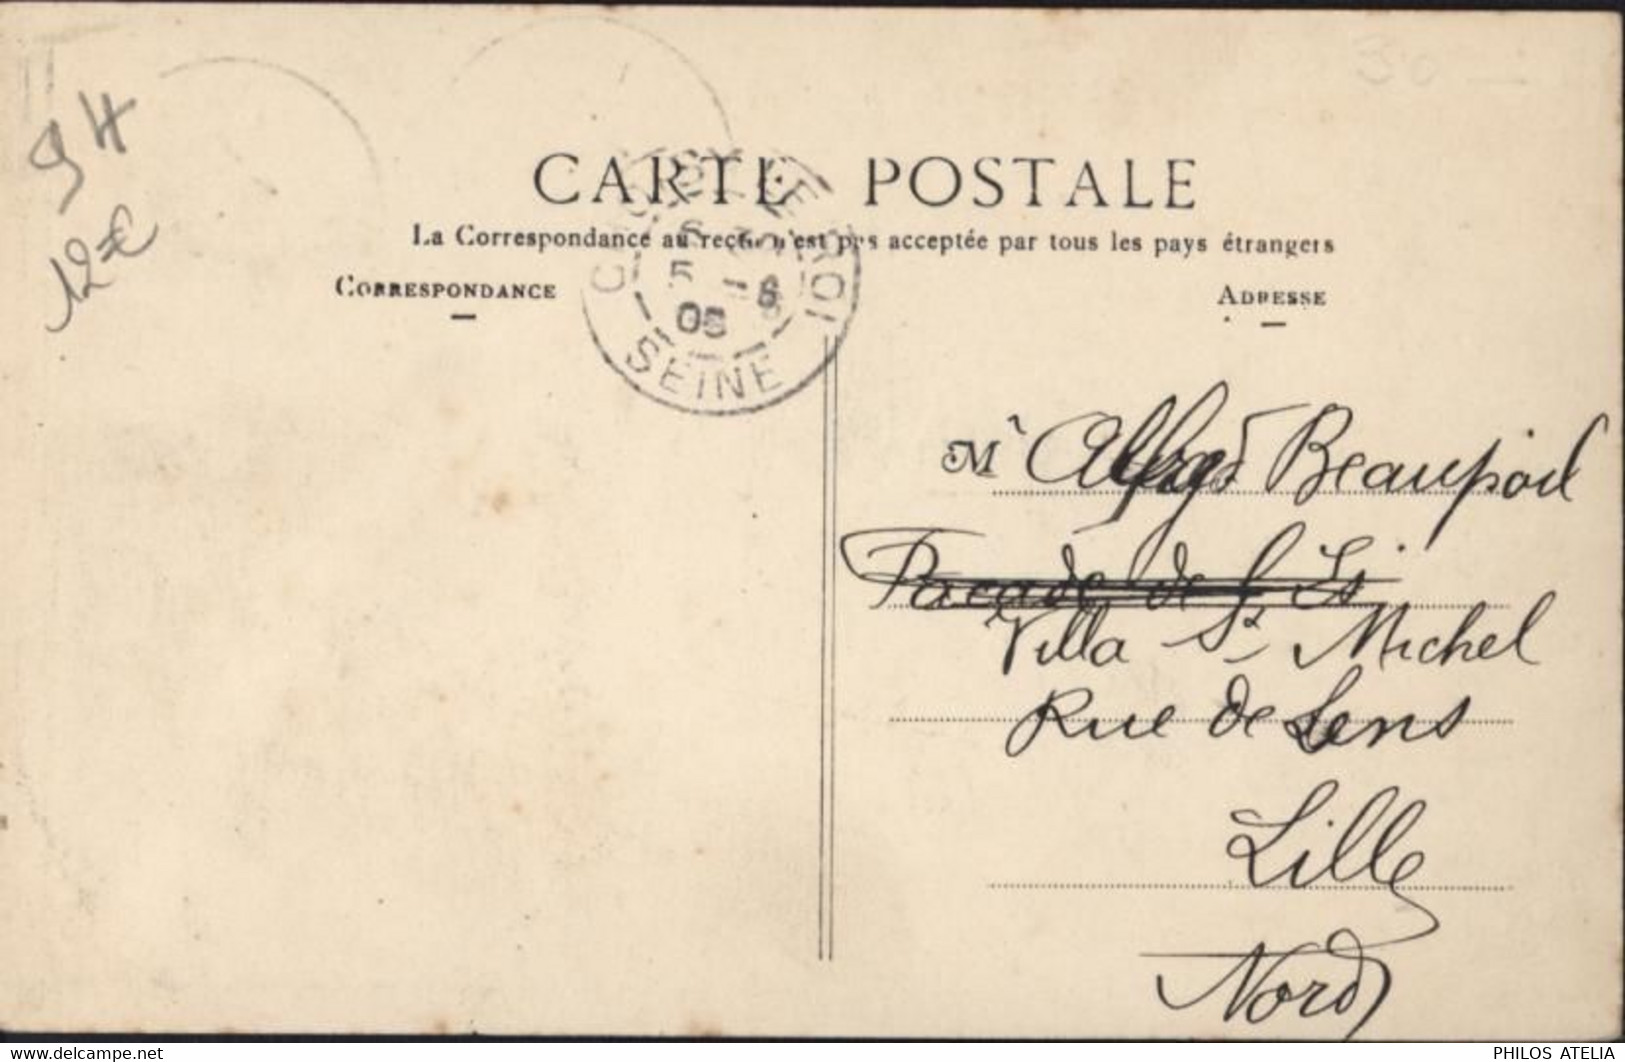 30
9 H
12 €
CARTE POSTALE
La Correspondance au recto n'est pas acceptée par tous les pays étrangers
CORRESPONDANCE
ADRESSE
CHOISY LE ROI
5 -8
05
SEINE
Mr Alfred Beaupoil
Façade de
Villa St Michel
Rue de Lens
Lille
Nord
www.delcampe.net
PHILOS ATELIA